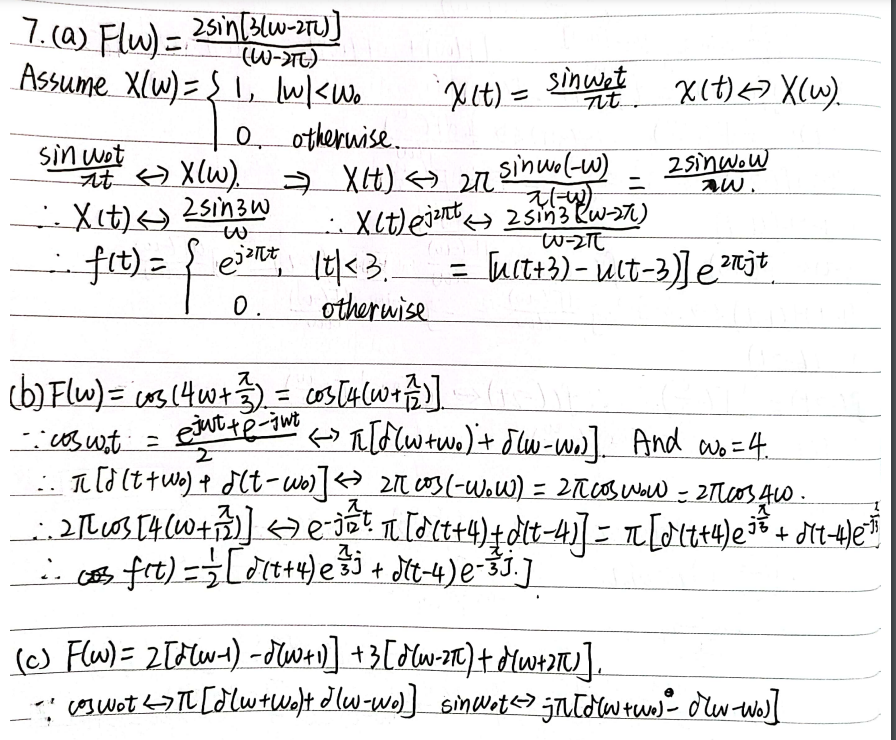 7. (a) F(ω) = 2sin[3(ω-2π)] / (ω-2π)
Assume X(ω) = { 1, |ω|<ω₀ ; 0, otherwise. ∵ x(t) = sinω₀t / πt. x(t) ↔ X(ω).
sinω₀t / πt ↔ X(ω). ⇒ X(t) ↔ 2π sinω₀(-ω) / π(-ω) = 2sinω₀ω / ω.
∴ X(t) ↔ 2sin3ω / ω ∴ X(t)e^{j2πt} ↔ 2sin3(ω-2π) / ω-2π
∴ f(t) = { e^{j2πt}, |t|<3. ; 0. otherwise = [u(t+3) - u(t-3)] e^{2πjt}.
(b) F(ω) = cos(4ω+π/3). = cos[4(ω+π/12)].
∵ cosω₀t = e^{jωt}+e^{-jωt} / 2 ↔ π[δ(ω+ω₀) + δ(ω-ω₀)]. And ω₀=4.
∴ π[δ(t+ω₀) + δ(t-ω₀)] ↔ 2π cos(-ω₀ω) = 2πcosω₀ω = 2πcos4ω.
∴ 2πcos[4(ω+π/12)] ↔ e^{-jπ/12 t}. π[δ(t+4)+δ(t-4)] = π[δ(t+4)e^{jπ/3} + δ(t-4)e^{-jπ/3}
∴ f(t) = 1/2 [δ(t+4)e^{π/3 j} + δ(t-4)e^{-π/3 j}.]
(c) F(ω) = 2[δ(ω-1) - δ(ω+1)] + 3[δ(ω-2π) + δ(ω+2π)].
∵ cosω₀t ↔ π[δ(ω+ω₀)+ δ(ω-ω₀)] sinω₀t ↔ jπ[δ(ω+ω₀) - δ(ω-ω₀)]